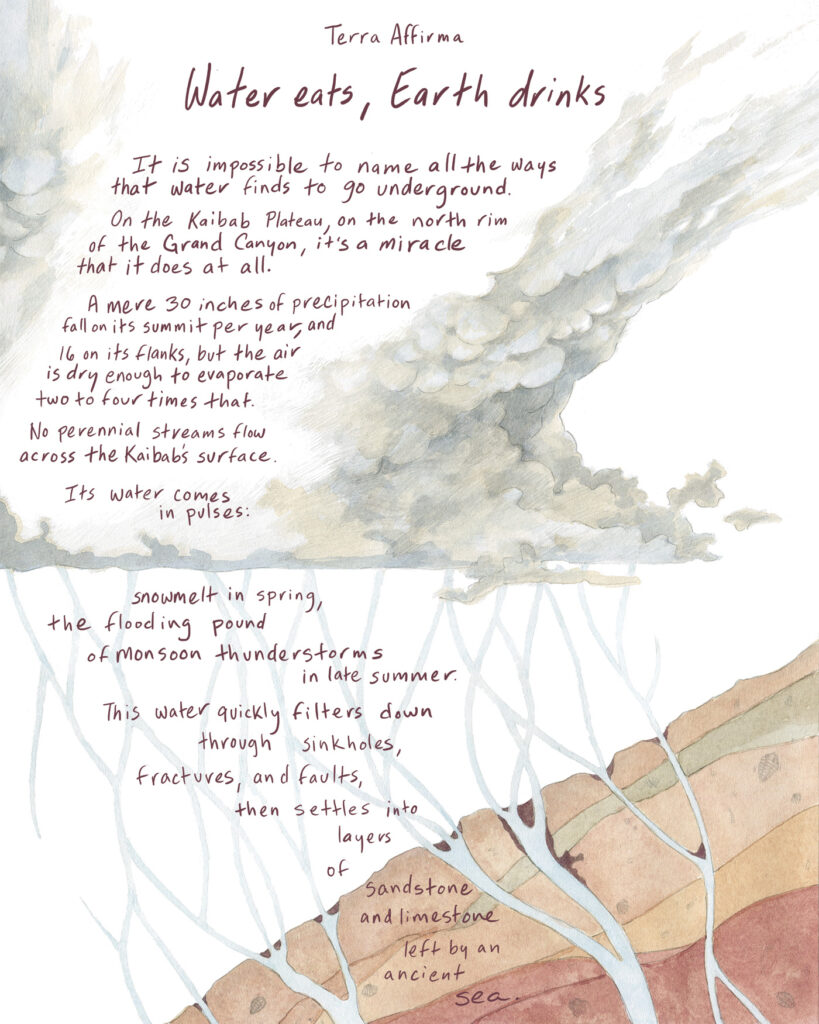 Terra Affirma
Water eats, Earth drinks
It is impossible to name all the ways
that water finds to go underground.
On the Kaibab Plateau, on the north rim
of the Grand Canyon, it's a miracle
that it does at all.
A mere 30 inches of precipitation
fall on its summit per year, and
16 on its flanks, but the air
is dry enough to evaporate
two to four times that.
No perennial streams flow
across the Kaibab's surface.
Its water comes
in pulses:
snowmelt in spring,
the flooding pound
of monsoon thunderstorms
in late summer.
This water quickly filters down
through sinkholes,
fractures, and faults,
then settles into
layers
of
sandstone
and limestone
left by an
ancient
sea.